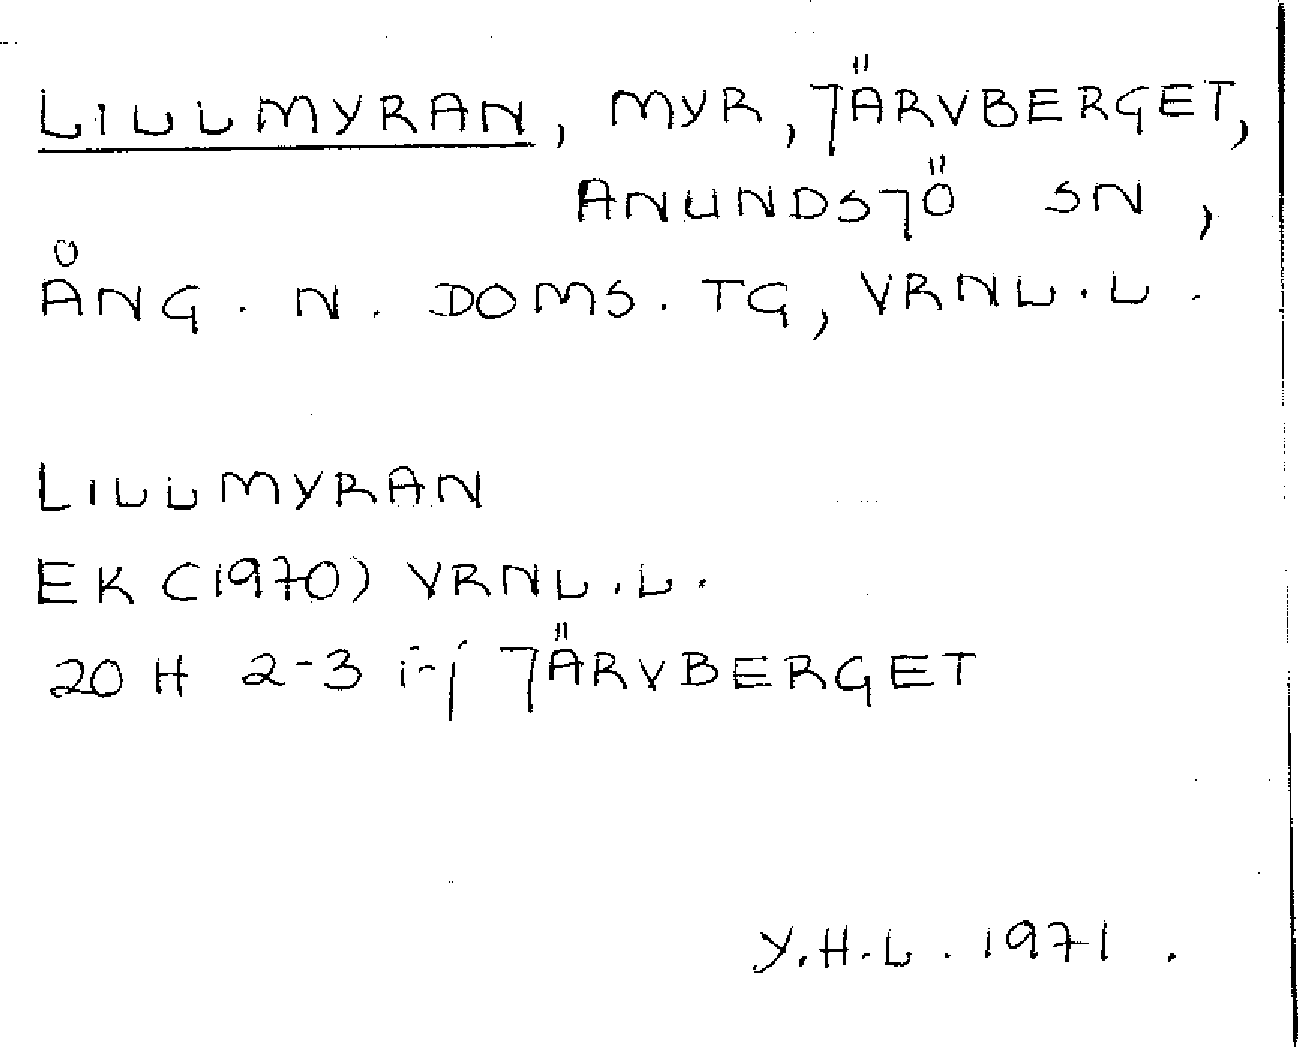 LILLMYRAN, MYR, JÄRVBERGET,
ANUNDSJÖ SN,
ÅNG. N. DOMS. TG, VRNL.L.
LILLMYRAN
EK (1970) VRNL.L.
20 H 2-3 i-j JÄRVBERGET
Y.H.L. 1971.